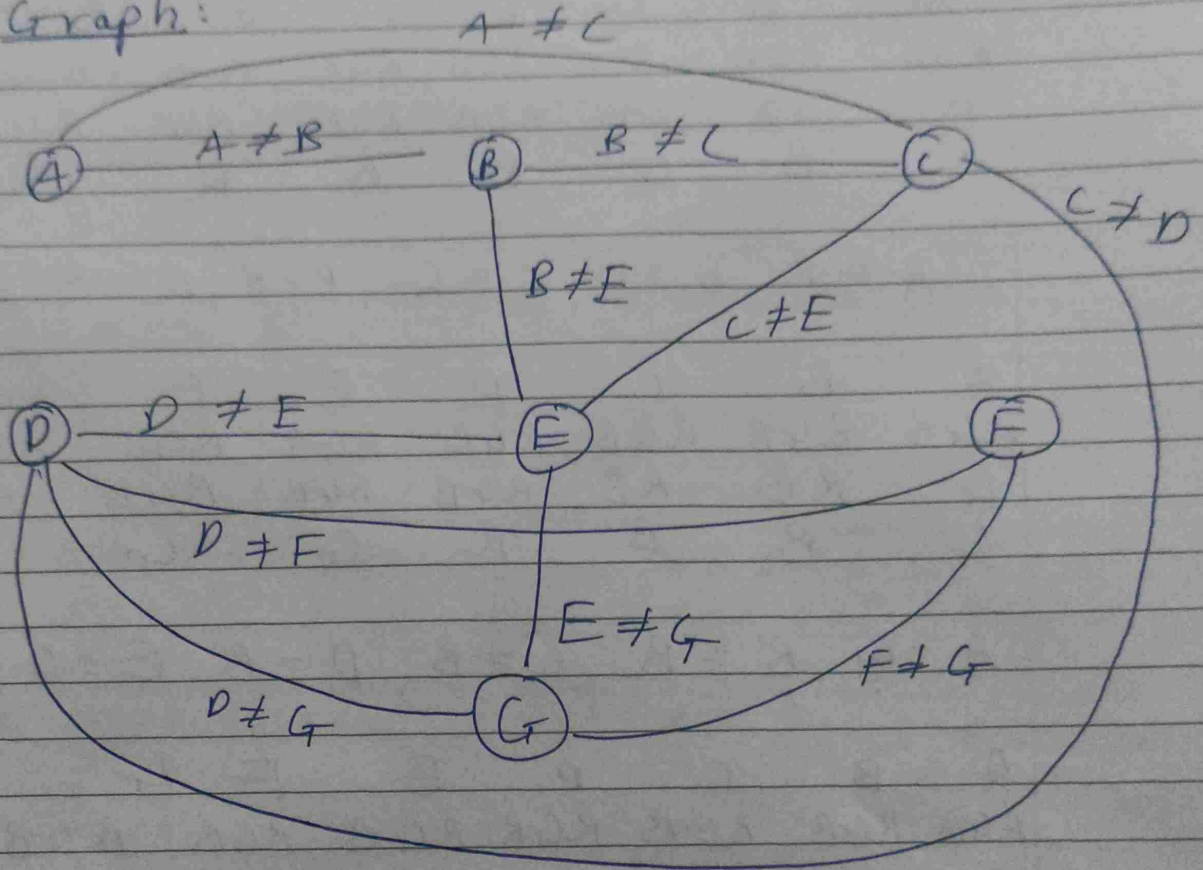 Graph:
A ≠ C
A A ≠ B B B ≠ C C
C ≠ D
B ≠ E
C ≠ E
D D ≠ E E F
D ≠ F
E ≠ G
F ≠ G
D ≠ G G